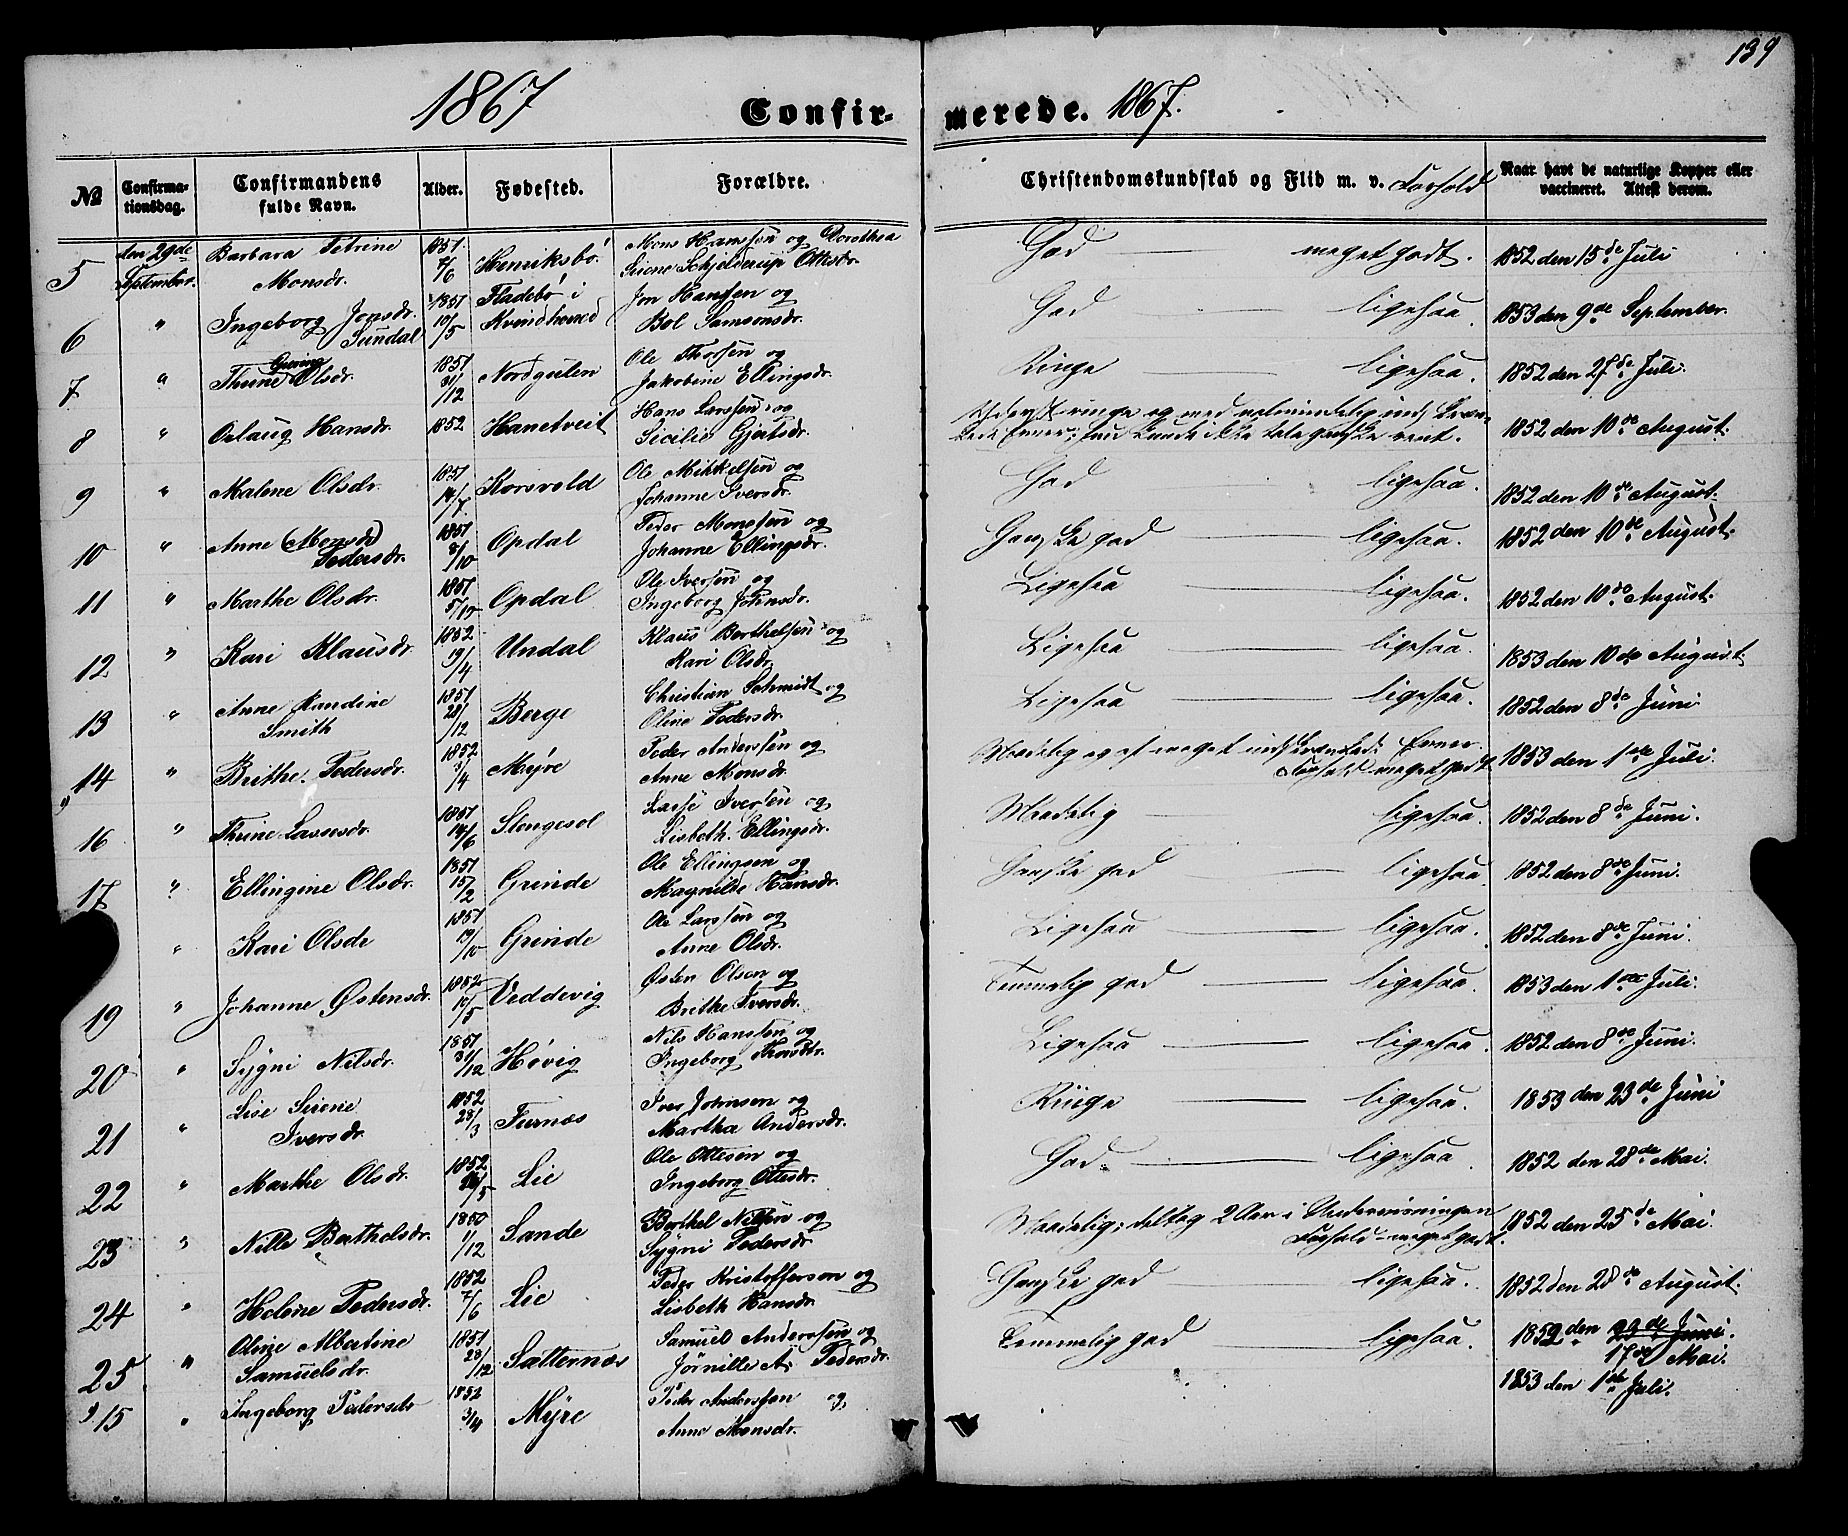 139
1867 Confir- merede. 1867.
№ Confirma-tionsdag. Confirmandens fulde Navn. Alder. Fødested. Forældre. Christendomskundskab og Flid m. v. Forhold Naar havt de naturlige Kopper eller vaccineret. Attest derom.
5 den 29de September. Barbara Petrine Monsdr. 1851 7/6 Henriksbø. Mons Hanssen og Dorothea Sirene Schjelderup Ottesdr. God — meget godt. 1852 den 15de Juli
6 " Ingeborg Jonsdr. Sundal 1851 10/5 Fladebø i Kvindherred Jon Hanssen og Bol Samsonsdr. God — ligesaa. 1853 den 9de September.
7 " Thrine Olsdr. 1851 31/12 Nordgulen Ole Thorsen og Jakobine Ellingsdr. Ringe — ligesaa. 1852 den 27de Juli.
8 " Oslaug Hansdr. 1852 Hanetveit Hans Larssen og Sicilie Gjertsdr. Yderst ringe og med ualmindelig indskrænkede Evner; hun kunde ikke tale ganske rent. 1852 den 10de August.
9 " Malene Olsdr. 1851 14/7. Korsvold Ole Mikkelsen og Johanne Iversdr. God — ligesaa. 1852 den 10de August.
10 " Anne (Monsdr) Pedersdr. 1851 8/10 Opdal Peder Monssen og Johanne Ellingsdr. Ganske god — ligesaa. 1852 den 10de August.
11 " Marthe Olsdr. 1851 Opdal Ole Iversen og Ingeborg Johnsdr. Ligesaa — ligesaa. 1852 den 10de August.
12 " Kari Klausdr. 1852 19/4 Undal Klaus Berthelsen og Kari Olsdr. Ligesaa — ligesaa. 1853 den 10de August
13 " Anne Randine Smith 1851 28/12 Berge Christian Schmidt og Oline Pedersdr. Ligesaa — ligesaa. 1852 den 8de Juni
14 " Brithe Pedersdr. 1852 3/4 Myre Peder Anderssen og Anne Monsdr. Maadelig og af meget indskrænkede Evner. Forhold meget godt. 1853 den 1ste Juli.
16 " Thrine Lassesdr. 1851 14/6 Stongesol Lasse Iversen og Lisbeth Ellingsdr. Maadelig — ligesaa. 1852 den 8de Juni.
17 " Ellingine Olsdr. 1851 15/2 Grinde Ole Ellingsen og Magnilde Hansdr. Ganske god — ligesaa. 1852 den 8de Juni.
" Kari Olsdr 1851 19/10 Grinde Ole Larssen og Anne Olsdr. Ligesaa — ligesaa. 1852 den 8de Juni.
19 " Johanne Østensdr. 1852 10/5 Veddevig Østen Olson og Brithe Iversdr. Temmelig god — ligesaa. 1853 den 1ste Juli.
20 " Sygni Nilsdr. 1851 31/12 Høvig Nils Hanssen og Ingeborg Thorsdtr. Ligesaa — ligesaa. 1852 den 8de Juni.
21 " Lise Sirene Iversdr. 1852 28/3 Furnæs Iver Johnsen og Martha Andersdr. Ringe — ligesaa. 1853 den 23de Juni
22 " Marthe Olsdr. 1852 Lie Ole Ottesen og Ingeborg Ottesdr. God — ligesaa. 1852 den 28de Mai.
23 " Nille Barthelsdr. 1850 1/12 Sande Berthel Nilssen og Sygni Pedersdr. Maadelig; deltog 2 Aar i Undervisningen Forhold meget godt. 1852 den 25de Mai.
24 " Helene Pedersdr. 1852 7/6 Lie Peder Kristofferson og Lisbeth Hansdr. Ganske god — ligesaa. 1852 den 28de August.
25 " Oline Albertine Samuelsdr. 1851 28/12 Sætternæs Samuel Anderssen og Jørnille A. Pedersdr. Temmelig god — ligesaa. 1852 den 23de Juni. 17de Mai.
15 " Ingeborg Pedersdr 1852 3/4 Myre Peder Anderssen og Anne Monsdr. 1853 den 1ste Juli.